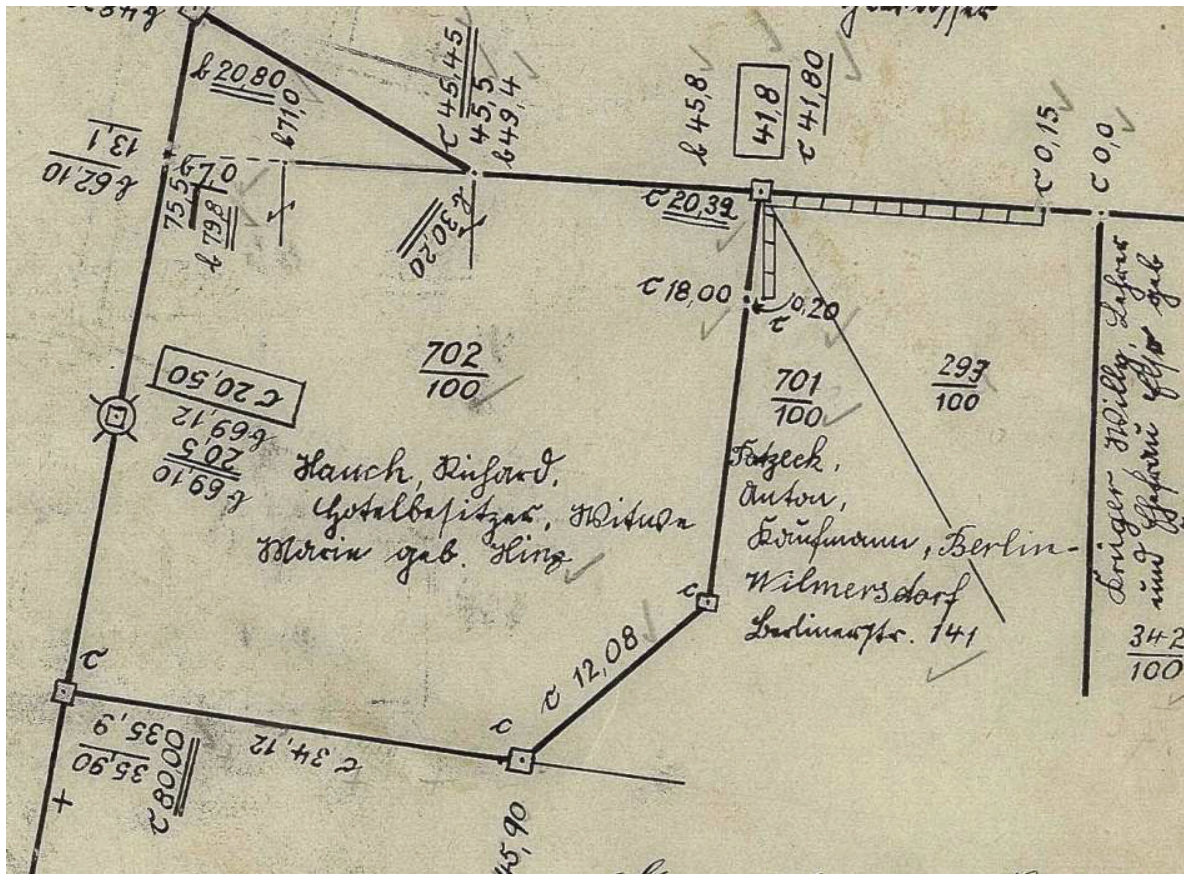 b 20,80
b 71,0
c 45,45
45,5
b 49,4
b 45,8
41,8
c 41,80
c 0,15
c 0,0
13,1
b 62,10
75,5
b 79,8
c 30,20
c 20,39
c 18,00
c 0,20
702
100
701
100
293
100
c 20,50
b 69,12
20,5
b 69,10
Hauch, Richard,
Hotelbesitzer, Witwe
Marie geb. Hinz
Anton,
Kaufmann, Berlin-
Wilmersdorf
Berlinerstr. 141
Krüger Willy, Lehrer
und Ehefrau geb
342
100
c
c
c 12,08
c
c 34,12
35,9
35,90
c 80,00
45,90